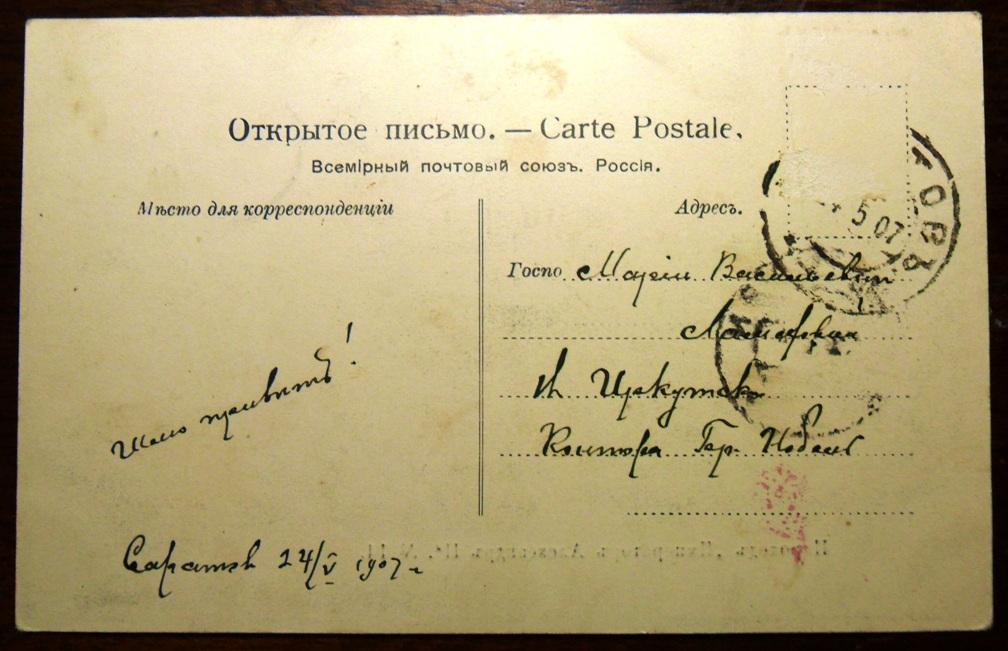 Открытое письмо. — Carte Postale.
Всемірный почтовый союзъ. Россія.
Мѣсто для корреспонденціи
Адресъ.
5 07
ТОВЪ
Госпо Маріи Васильевнѣ
Иркутскъ
Контора Бр. Нобель
Шлю привѣтъ!
Саратовъ 24/V 1907 г.